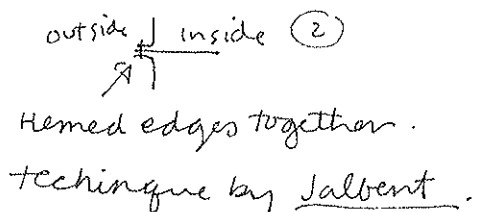 outside inside 2
Hemed edges together.
techinque by Jalbert.